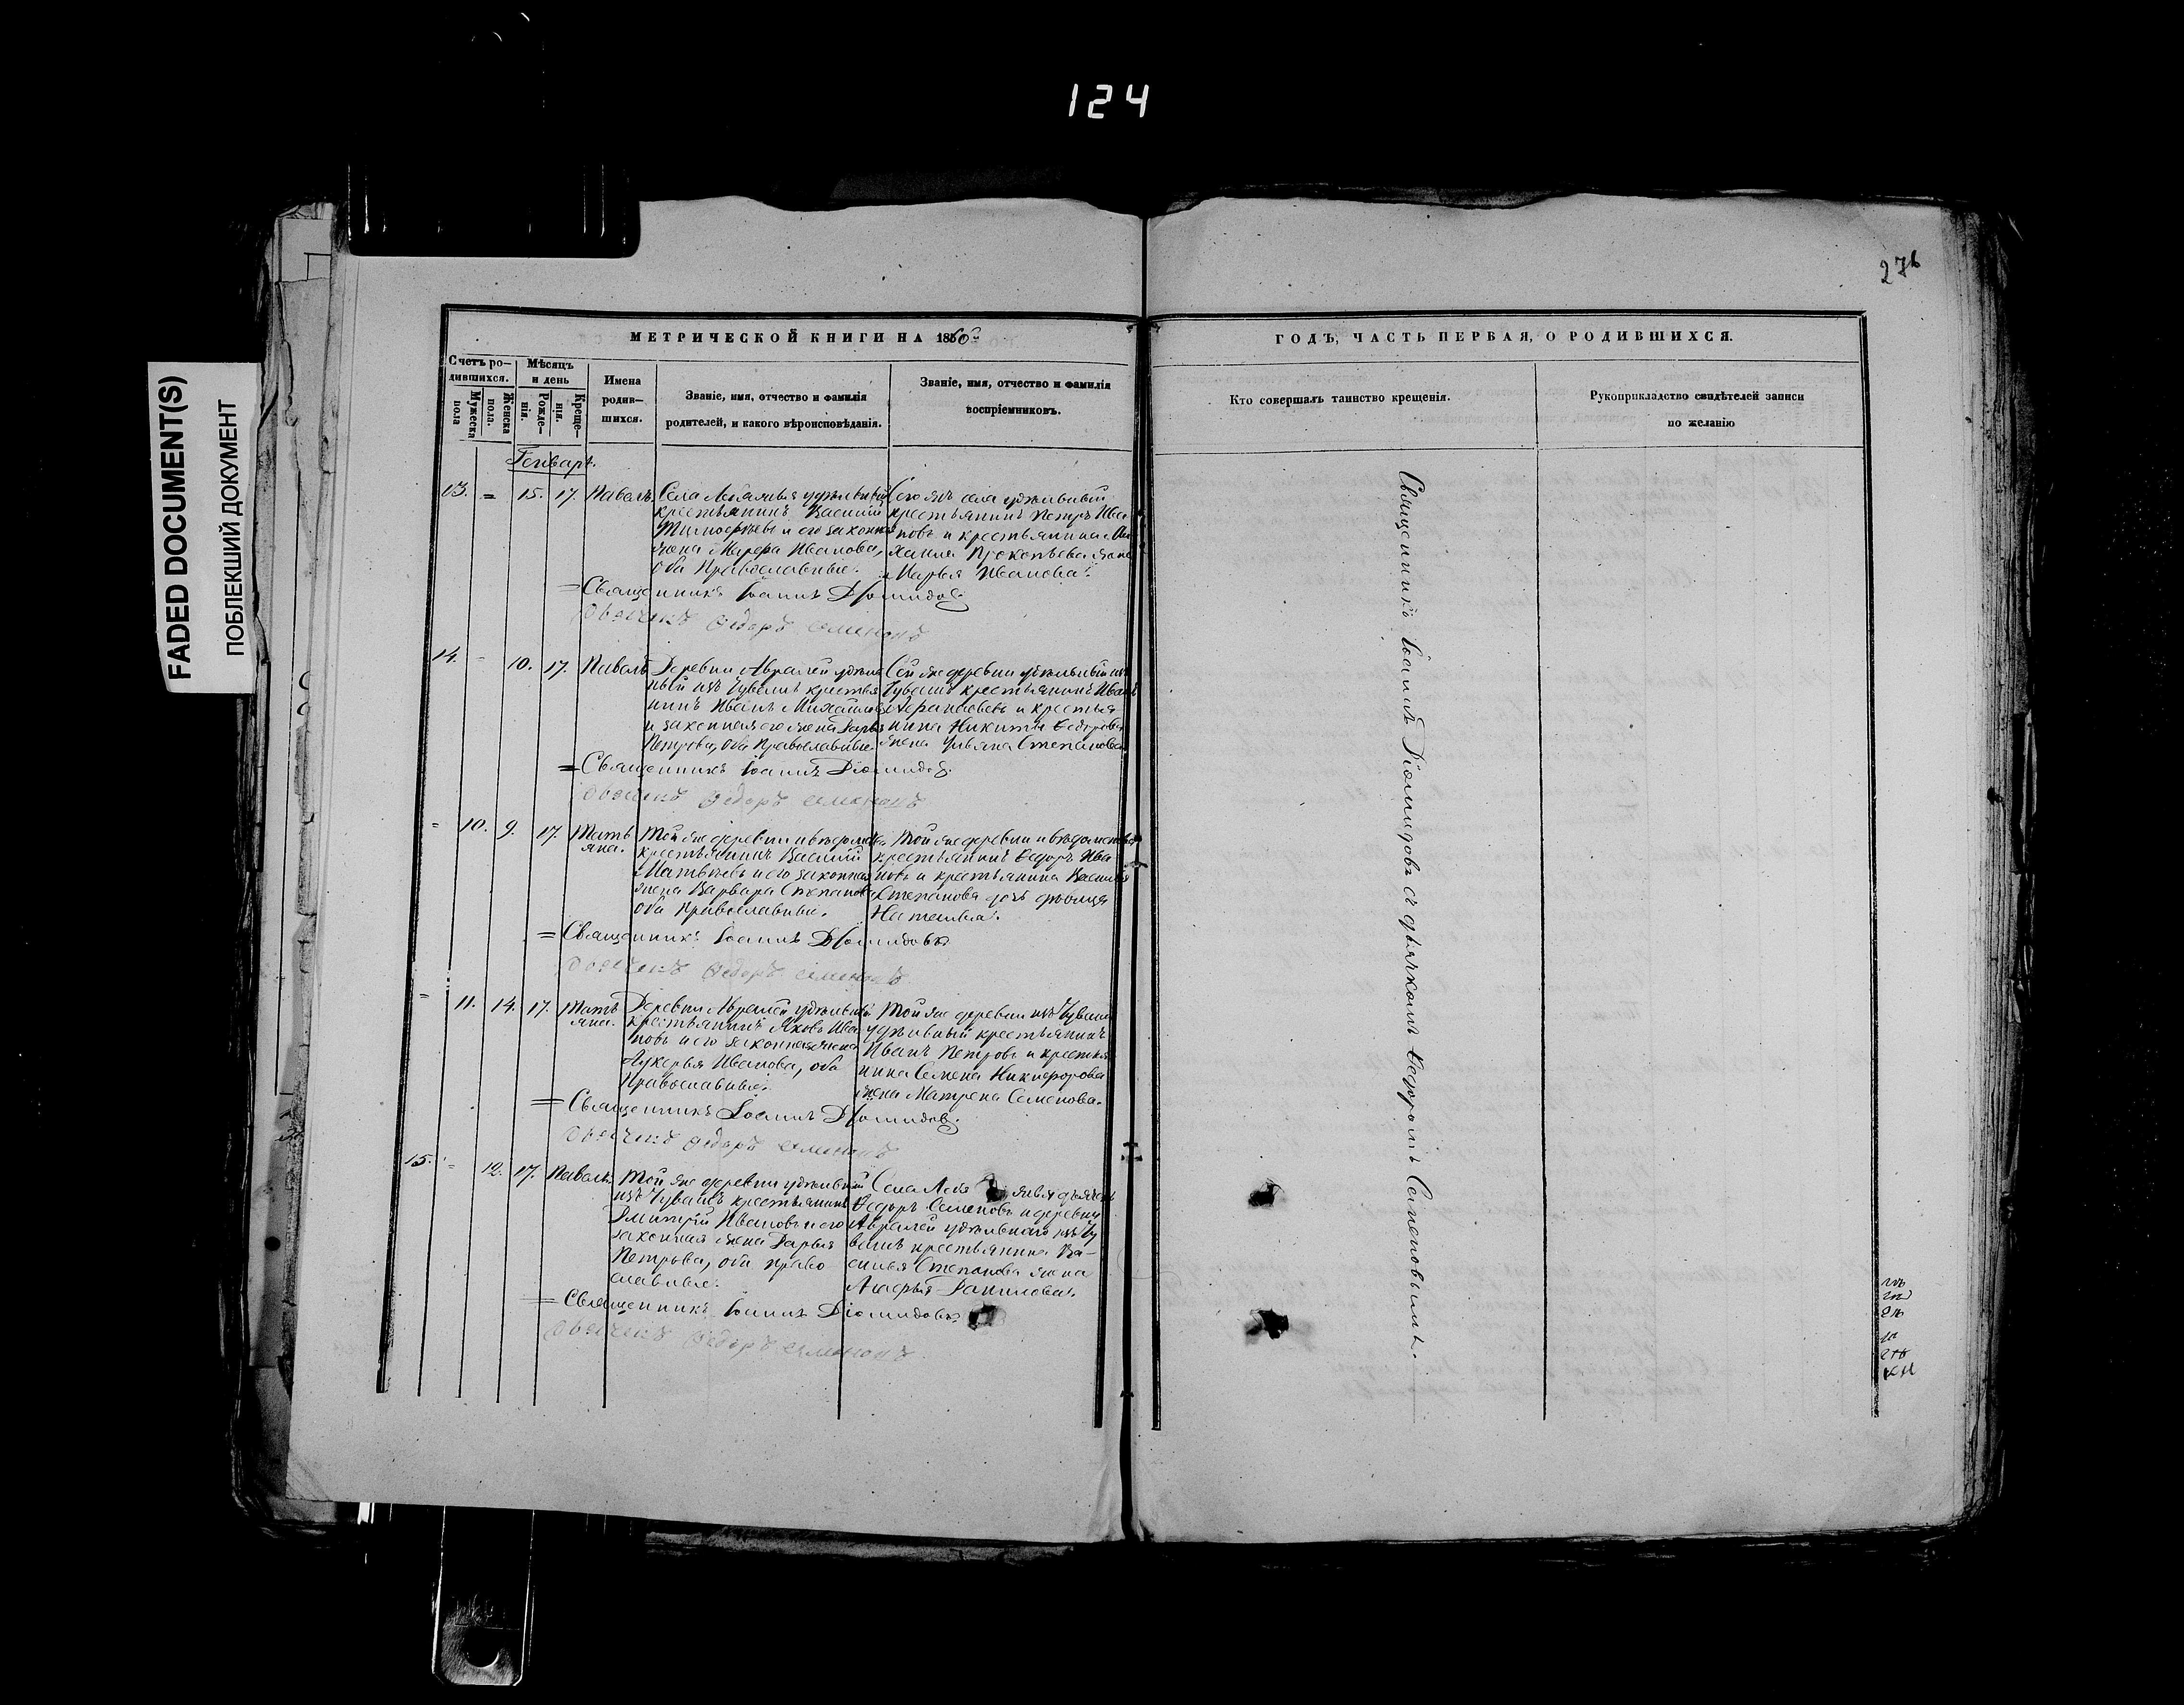 124
FADED DOCUMENT(S)
ПОБЛЕКШИЙ ДОКУМЕНТ
276
МЕТРИЧЕСКОЙ КНИГИ НА 1860й
ГОДЪ, ЧАСТЬ ПЕРВАЯ, О РОДИВШИХСЯ.
Счетъ ро-
дившихся.
Мужеска
пола
Женска
пола.
Мѣсяцъ
и день
Рожде-
нія.
Креще-
нія.
Имена
родив-
шихся.
Званіе, имя, отчество и фамилія
родителей, и какого вѣроисповѣданія.
Званіе, имя, отчество и фамилія
воспріемниковъ.
Кто совершалъ таинство крещенія.
Рукоприкладство свидѣтелей записи
по желанію
Генварь.
13. = 15. 17. Павелъ.
Села удѣльный
крестьянинъ Василій
Тимофѣевъ и его законная
жена Марфа Иванова,
оба Православные.
Того жъ села удѣльный
крестьянинъ Петръ Ива
новъ и крестьянина Ми
хаила Прокопьева жена
Марья Иванова.
= Священникъ Іоаннъ Діомидов
Дьячекъ Федоръ Семеновъ
14. - 10. 17. Павелъ
Деревни Авралей удѣль
ный изъ Чувашъ крестья
нинъ Иванъ Михайловъ
и законная его жена Дарья
Петрова, оба Православные.
Сей же деревни удѣльный изъ
Чувашъ крестьянинъ Иванъ
Афанасьевъ и крестья
нина Никиты Ѳедорова
жена Ульяна Степанова.
= Священникъ Іоаннъ Діомидов.
Дьячекъ Федоръ Семеновъ
= 10. 9. 17. Тать
яна.
Той же деревни и вѣдомства
крестьянинъ Василій
Матвѣевъ и его законная
жена Варвара Степанова
оба Православные.
Той же деревни и вѣдомства
крестьянинъ Ѳедоръ Ива
новъ и крестьянина Василья
Степанова дочь дѣвица
Наталья.
= Священникъ Іоаннъ Діомидовъ
Дьячекъ Федоръ Семеновъ
= 11. 14. 17. Тать
яна.
Деревни Авралей удѣльный
крестьянинъ Яковъ Ива
новъ и его законная жена
Лукерья Иванова, оба
Православные.
Той же деревни изъ Чувашъ
удѣльный крестьянинъ
Иванъ Петровъ и крестья
нина Семена Никифорова
жена Матрена Семенова.
= Священникъ Іоаннъ Діомидов.
Дьячекъ Федоръ Семеновъ
15. = 12. 17. Павелъ.
Той же деревни удѣльный
изъ Чувашъ крестьянинъ
Дмитрій Ивановъ и его
законная жена Дарья
Петрова, оба право
славные.
Села дьячекъ
Ѳедоръ Семеновъ и деревни
Авралей удѣльнаго изъ Чу
вашъ крестьянина Ва-
силья Степанова жена
Данилова.
= Священникъ Іоаннъ Діомидовъ
Дьячекъ Федоръ Семеновъ
Священникъ Іоаннъ Діомидовъ съ дьячкомъ Ѳедоромъ Семеновымъ.